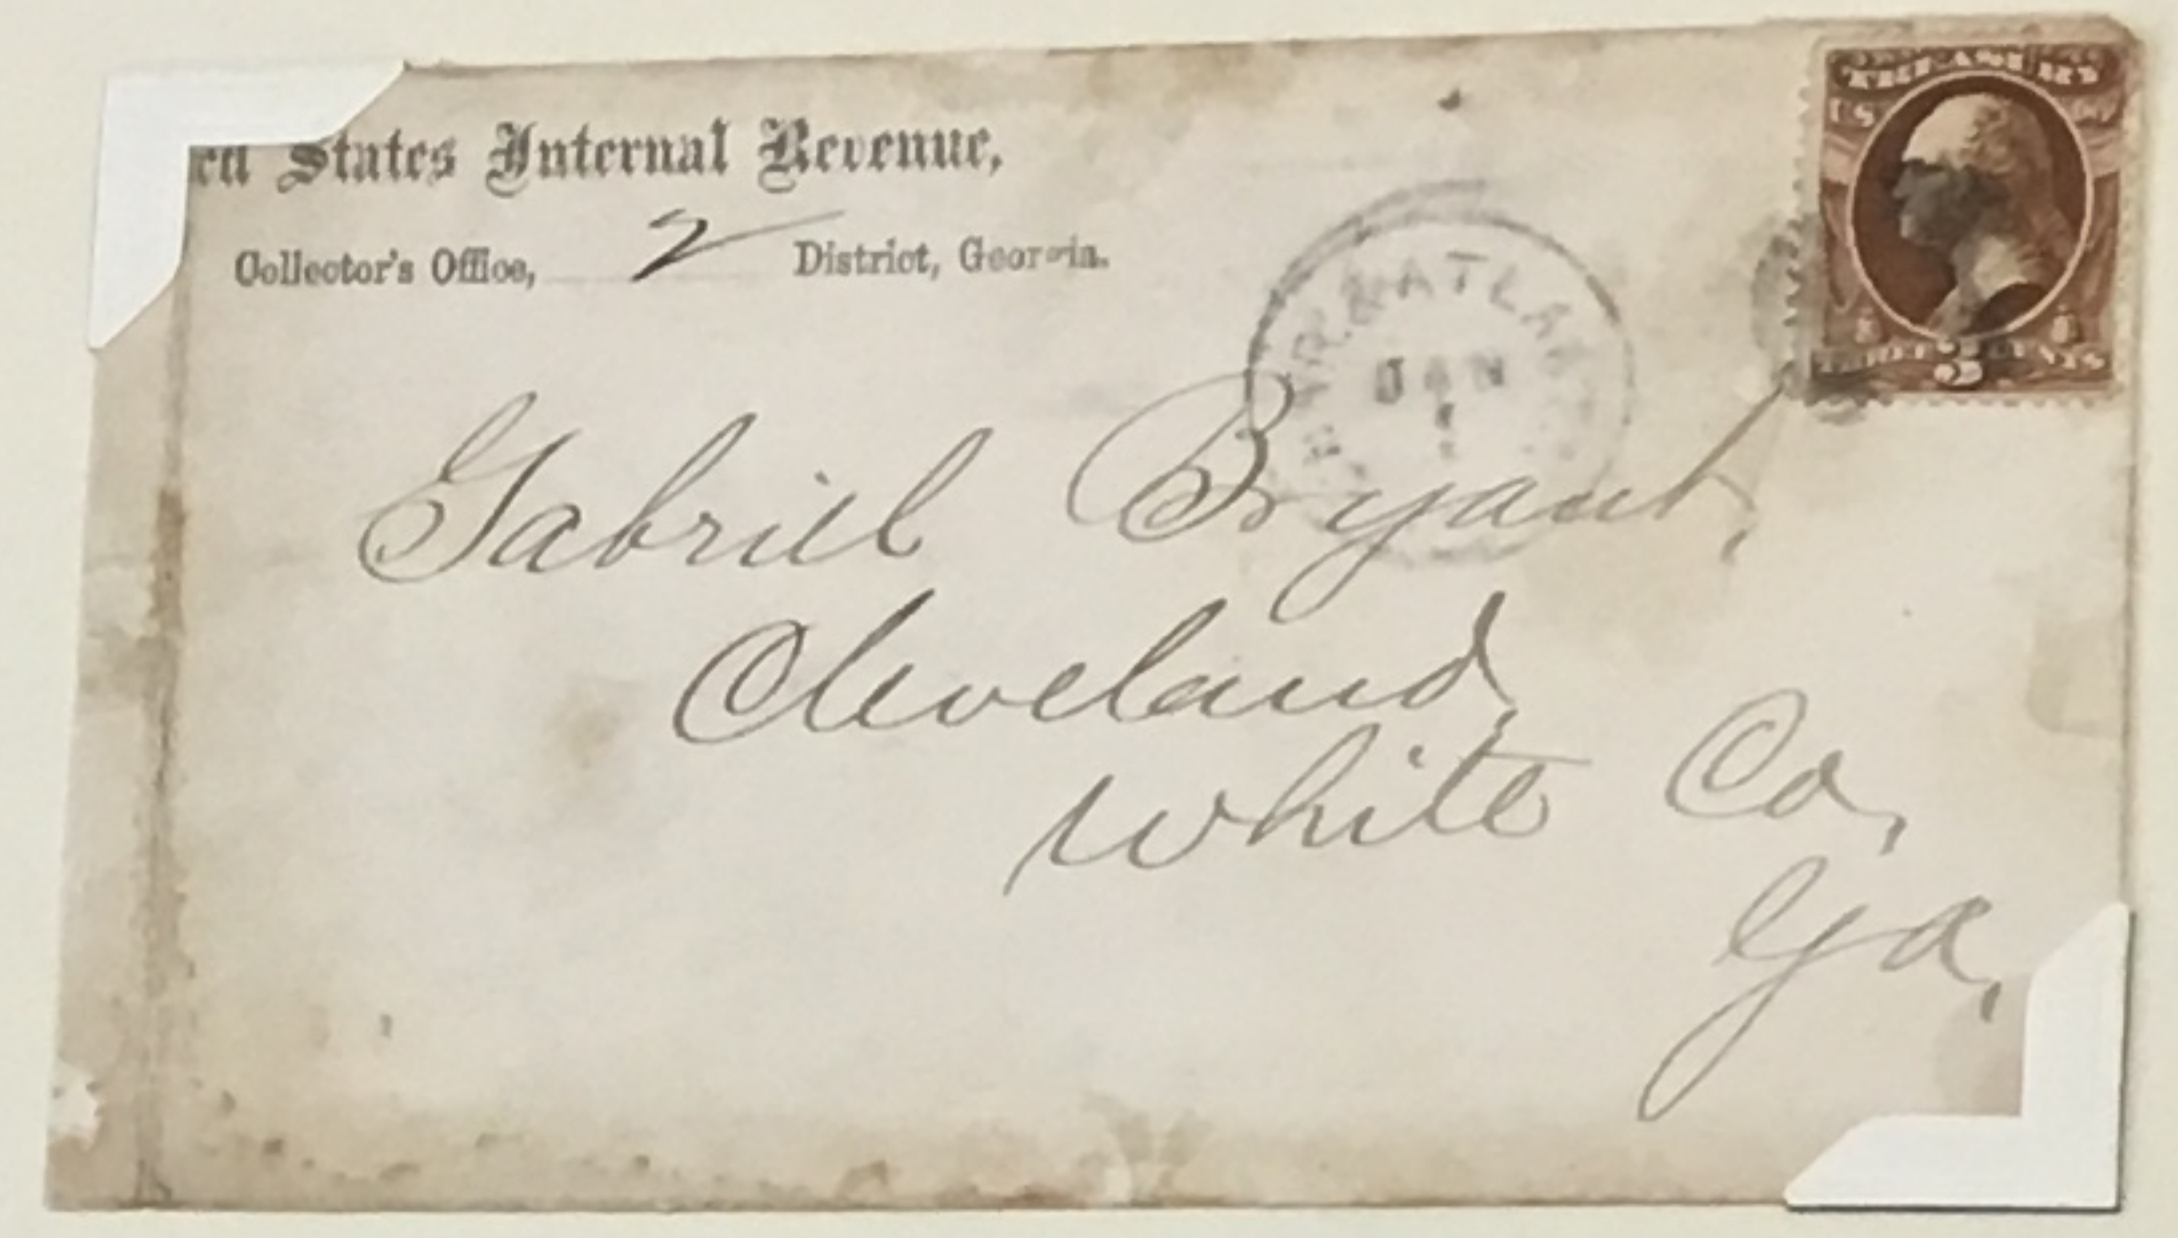 ed States Internal Revenue,
Collector's Office, 2 District, Georgia.
TREASURY
U S
THREE 3 CENTS
JAN
1
Gabriel Bryant,
Cleveland,
White Co,
Ga,